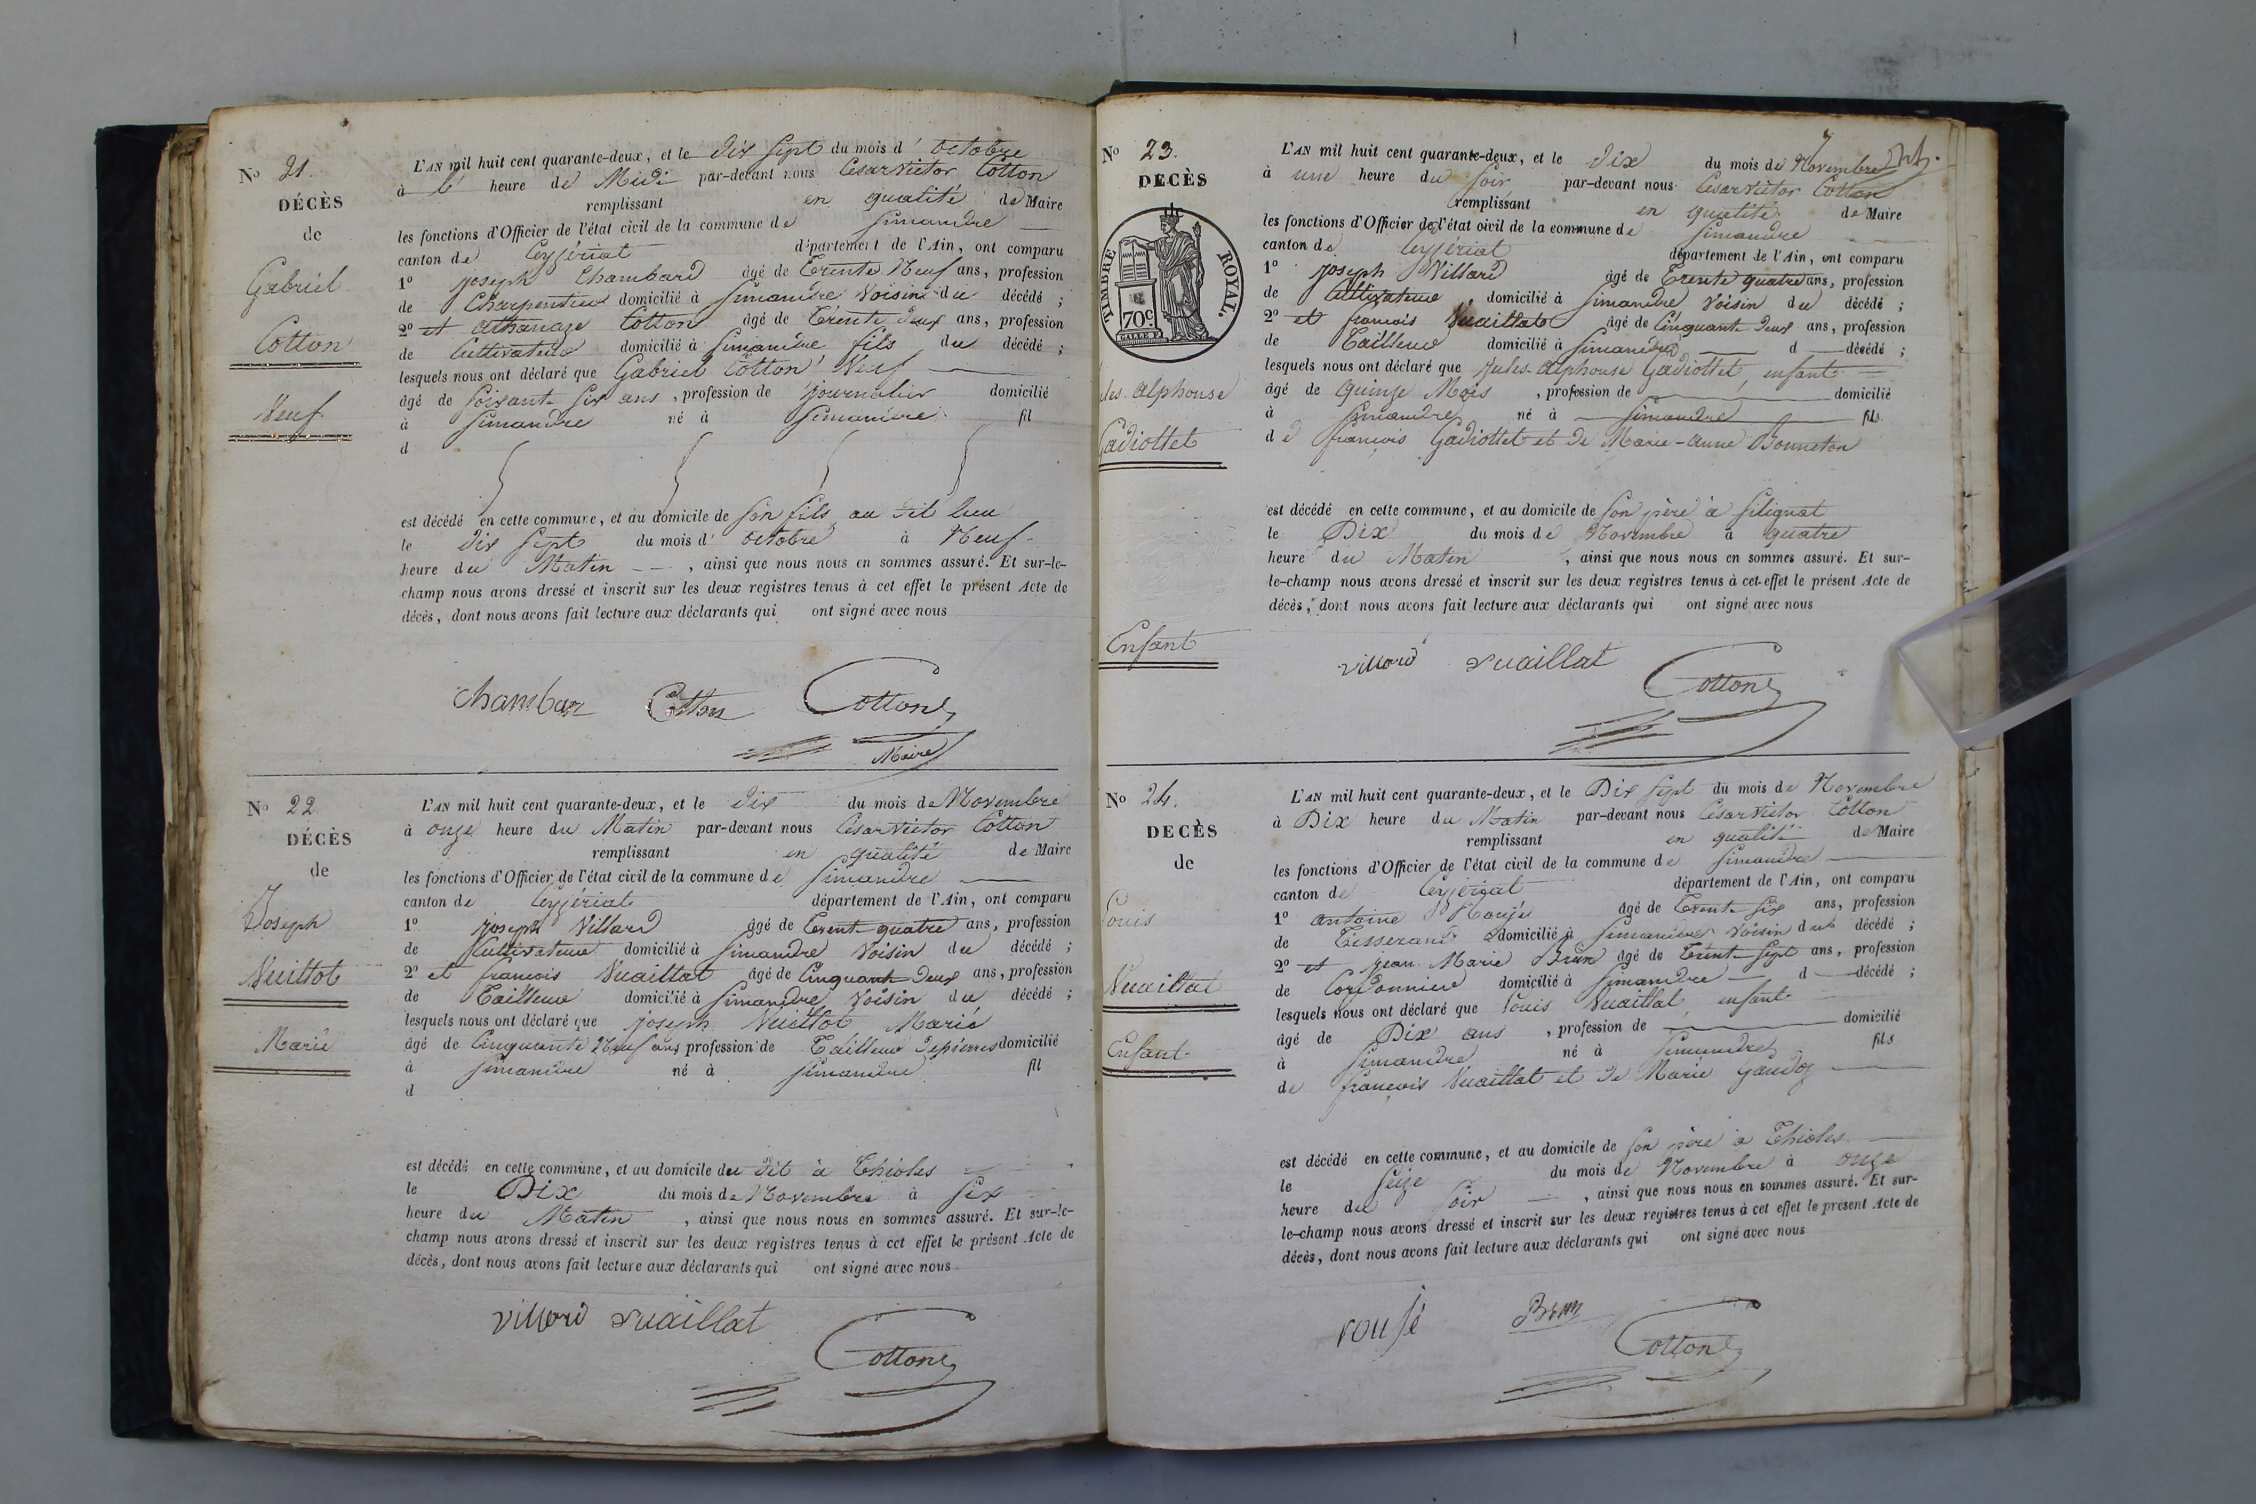 No 21.
DÉCÈS
de
Gabriel
Cotton
Veuf
L'AN mil huit cent quarante-deux, et le dix sept du mois d' octobre
à l' heure de Midi par-devant nous César Victor Cotton
remplissant en qualité de Maire
les fonctions d'Officier de l'état civil de la commune de Simandre
canton de Ceyzériat département de l'Ain, ont comparu
1º joseph Chambard âgé de Trente Neuf ans, profession
de Charpentier domicilié à Simandre Voisin du décédé ;
2º et athanaze Cotton âgé de Trente deux ans, profession
de Cultivateur domicilié à Simandre fils du décédé ;
lesquels nous ont déclaré que Gabriel Cotton Veuf
âgé de soixant six ans , profession de journalier domicilié
à Simandre né à Simandre fil
d
est décédé en cette commune, et au domicile de son fils au dit lieu
le dix sept du mois d' octobre à Neuf
heure du Matin , ainsi que nous nous en sommes assuré. Et sur-le-
champ nous avons dressé et inscrit sur les deux registres tenus à cet effet le présent Acte de
décès, dont nous avons fait lecture aux déclarants qui ont signé avec nous
Chambar Cotton Cotton
Maire
No 22
DÉCÈS
de
Joseph
Vuillot
Marié
L'AN mil huit cent quarante-deux, et le dix du mois de Novembre
à onze heure du Matin par-devant nous César Victor Cotton
remplissant en qualité de Maire
les fonctions d'Officier de l'état civil de la commune de Simandre
canton de Ceyzériat département de l'Ain, ont comparu
1º joseph Villard âgé de Trent quatre ans, profession
de Cultivateur domicilié à Simandre Voisin du décédé ;
2º et francois Vuaillat âgé de Cinquant Deux ans, profession
de Tailleur domicilié à Simandre Voisin du décédé ;
lesquels nous ont déclaré que joseph Vuillot Marié
âgé de Cinquante Neuf ans profession de Tailleur de pierres domicilié
à Simandre né à Simandre fil
d
est décédé en cette commune, et au domicile du dit à Thioles
le Dix du mois de Novembre à Six
heure du Matin , ainsi que nous nous en sommes assuré. Et sur-le-
champ nous avons dressé et inscrit sur les deux registres tenus à cet effet le présent Acte de
décès, dont nous avons fait lecture aux déclarants qui ont signé avec nous
villard vuaillat
Cotton
No 23.
DÉCÈS
TIMBRE ROYAL.
70c.
les alphonse
Gadiollet
Enfant
L'AN mil huit cent quarante-deux, et le Dix du mois de Novembre
à une heure du soir par-devant nous César Victor Cotton
remplissant en qualité de Maire
les fonctions d'Officier de l'état civil de la commune de Simandre
canton de Ceyzériat département de l'Ain, ont comparu
1º joseph Villard âgé de Trente quatre ans, profession
de Cultivateur , domicilié à Simandre Voisin du décédé ;
2º et francois Vuaillat âgé de Cinquant Deux ans, profession
de Tailleur domicilié à Simandre d décédé ;
lesquels nous ont déclaré que Jules-Alphonse Gadiollet, enfant
âgé de Quinze Mois , profession de domicilié
à Simandre né à Simandre fils
d e francois Gadiollet et de Marie-anne Bonneton
est décédé en cette commune, et au domicile de son père à Silignat
le Dix du mois de Novembre à quatre
heure du Matin , ainsi que nous nous en sommes assuré. Et sur-
le-champ nous avons dressé et inscrit sur les deux registres tenus à cet effet le présent Acte de
décès, dont nous avons fait lecture aux déclarants qui ont signé avec nous
villard vuaillat
Cotton
No 24.
DECÈS
de
Louis
Vuaillat
Enfant
L'AN mil huit cent quarante-deux, et le Dix Sept du mois de Novembre
à Dix heure du Matin par-devant nous César Victor Cotton
remplissant en qualité de Maire
les fonctions d'Officier de l'état civil de la commune de Simandre
canton de Ceyzériat département de l'Ain, ont comparu
1º antoine Roujé âgé de Trent Six ans, profession
de Tisserand domicilié à Simandre Voisin du décédé ;
2º et jean Marie Brun âgé de Trent Sept ans, profession
de Cordonnier domicilié à Simandre d décédé ;
lesquels nous ont déclaré que Louis Vuaillat, enfant
âgé de Dix ans , profession de domicilié
à Simandre né à Simandre fils
de francois Vuaillat et de Marie Gaudoz
est décédé en cette commune, et au domicile de son père à Thioles
le Seize du mois de Novembre à onze
heure du soir , ainsi que nous nous en sommes assuré. Et sur-
le-champ nous avons dressé et inscrit sur les deux registres tenus à cet effet le présent Acte de
décès, dont nous avons fait lecture aux déclarants qui ont signé avec nous
rousé Brun
Cotton